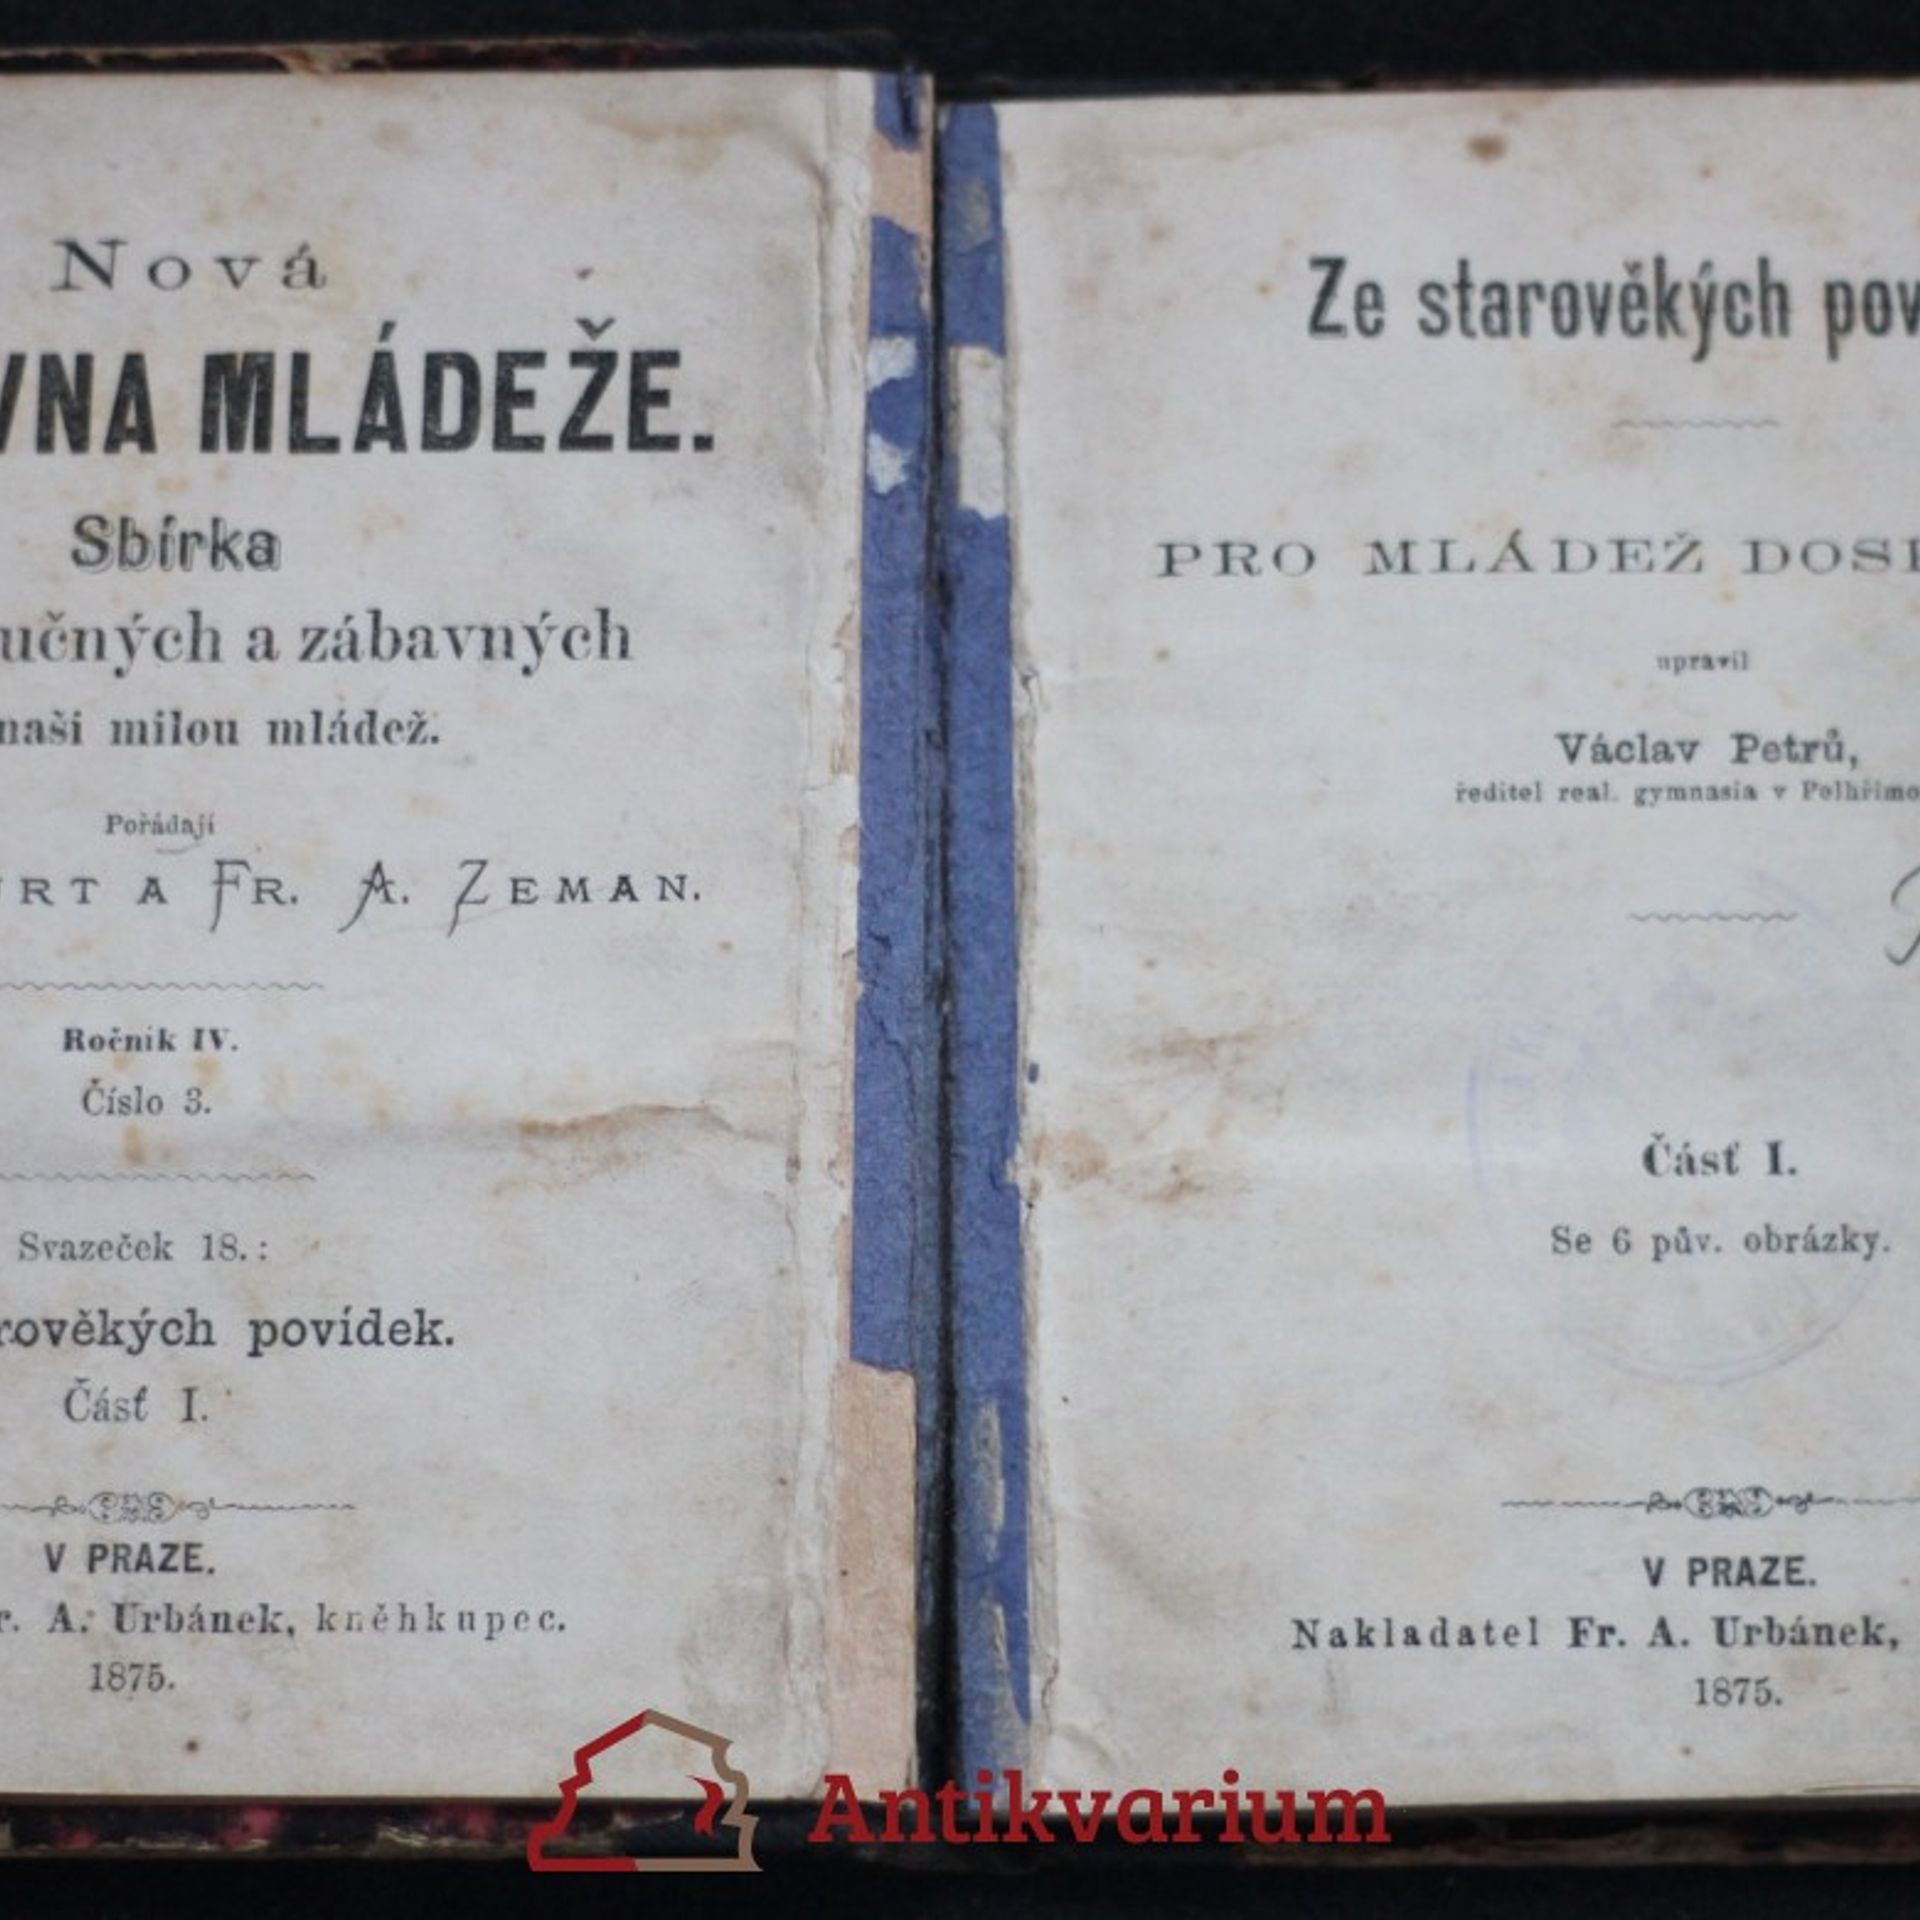 Nová
VNA MLÁDEŽE.
Sbírka
učných a zábavných
naši milou mládež.
Pořádají
URT A FR. A. ZEMAN.
Ročník IV.
Číslo 3.
Svazeček 18.:
rověkých povídek.
Část I.
V PRAZE.
r. A. Urbánek, kněhkupec.
1875.
Ze starověkých pov
PRO MLÁDEŽ DOSP
upravil
Václav Petrů,
ředitel real. gymnasia v Pelhřimo
Část I.
Se 6 pův. obrázky.
V PRAZE.
Nakladatel Fr. A. Urbánek,
1875.
Antikvarium